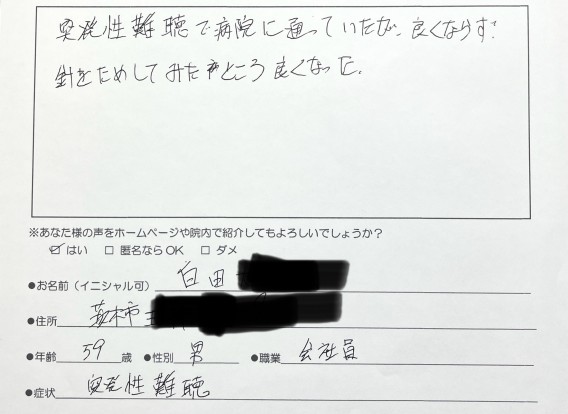 突発性難聴で病院に通っていたが、良くならず。
針をためしてみたところ良くなった。
※あなた様の声をホームページや院内で紹介してもよろしいでしょうか？
☑ はい □ 匿名ならOK □ ダメ
●お名前（イニシャル可） 白田
●住所 市
●年齢 59 歳 ●性別 男 ●職業 会社員
●症状 突発性難聴